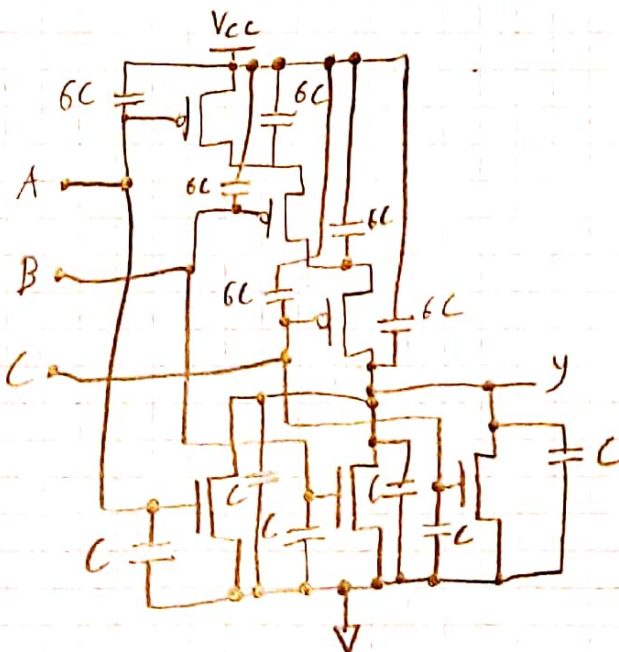 Vcc
6C
6C
A
6C
6C
B
6C
6C
C
y
C
C
C
C
C
C